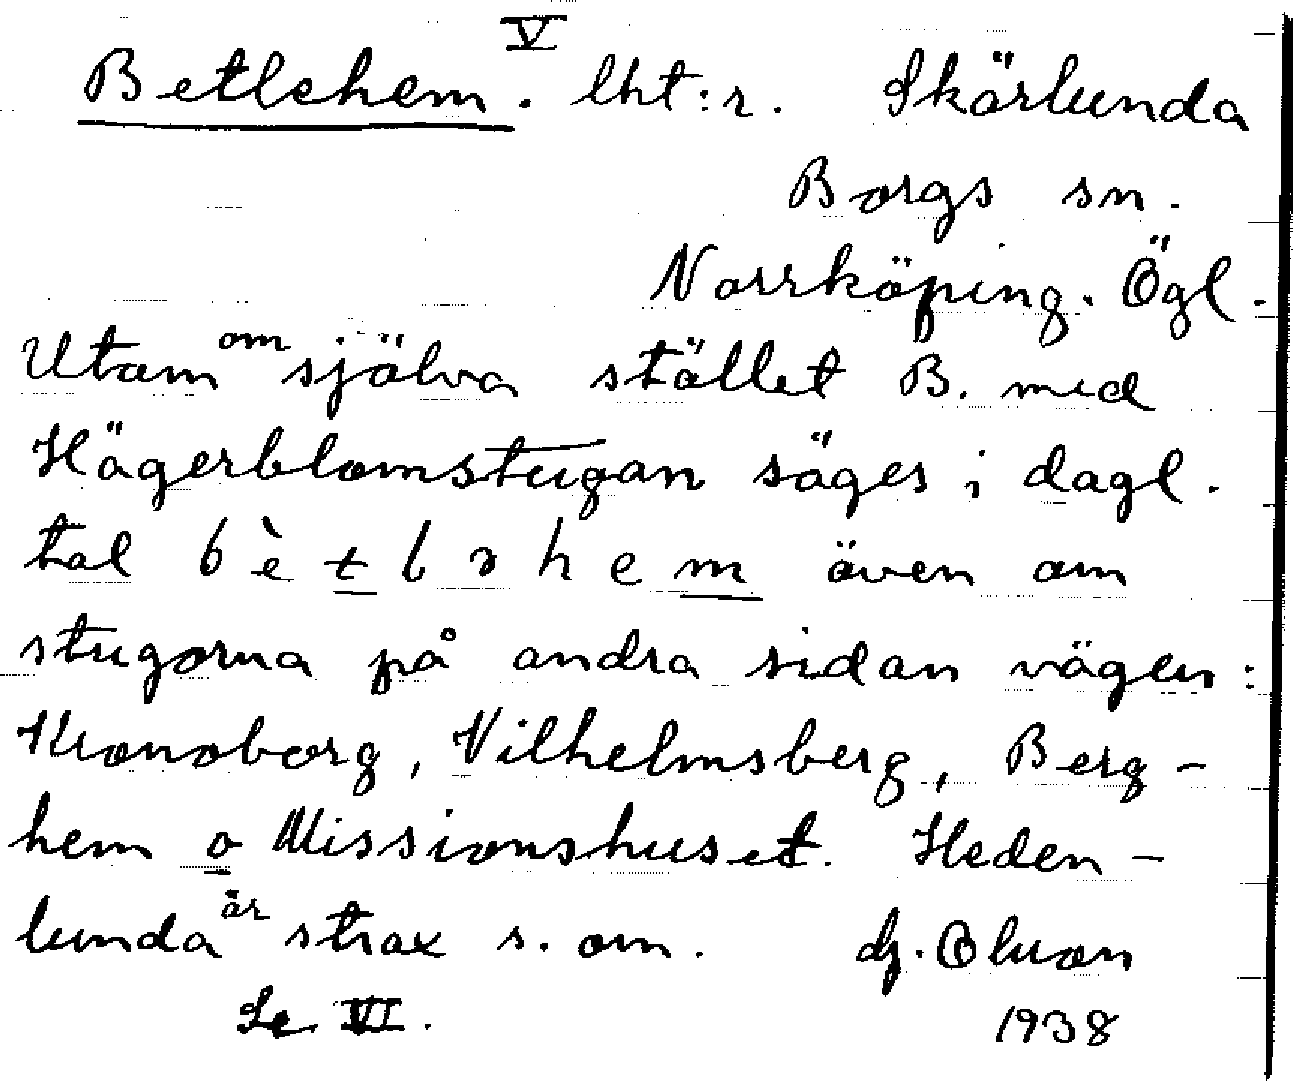 V
Betlehem. lht:r. Skärlunda
Borgs sn.
Norrköping. Ögl.
Utom om själva stället B. med
Hägerblomstugan säges i dagl.
tal bètləhem även om
stugorna på andra sidan vägen:
Kronoborg, Vilhelmsberg, Berg-
hem o Missionshuset. Heden-
lunda är strax s. om.
1938
Se VI.